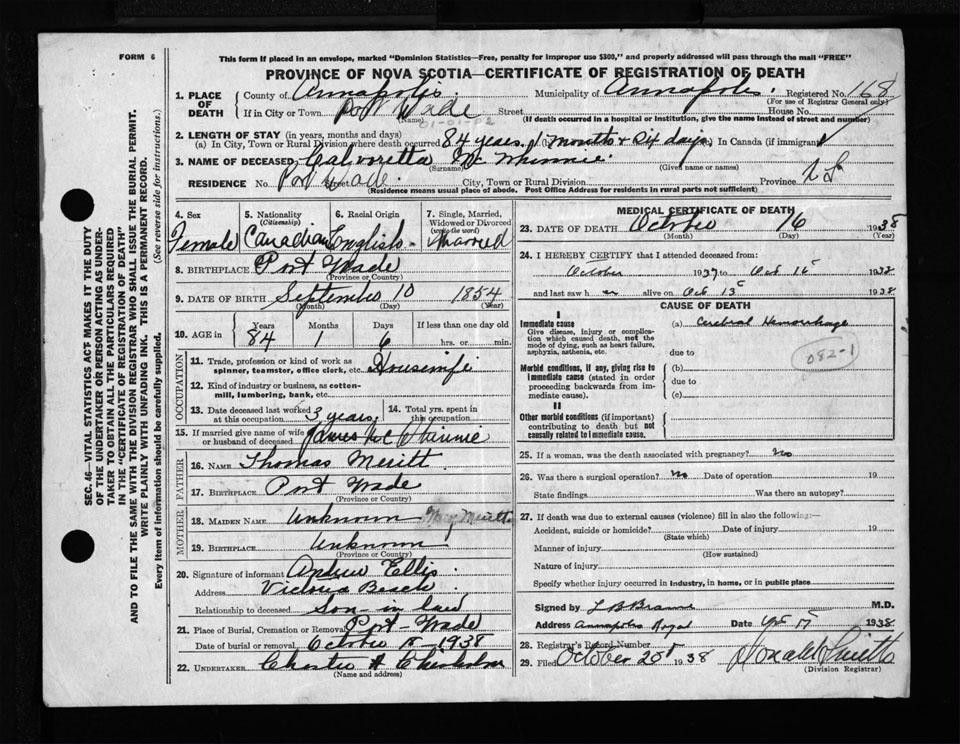 FORM 6
This form if placed in an envelope, marked "Dominion Statistics—Free, penalty for improper use $300," and properly addressed will pass through the mail "FREE"
PROVINCE OF NOVA SCOTIA—CERTIFICATE OF REGISTRATION OF DEATH
1. PLACE OF DEATH
County of Annapolis. Municipality of Annapolis. Registered No. 168
(For use of Registrar General only)
If in City or Town Port Wade Street House No.
(Name) (If death occurred in a hospital or institution, give the name instead of street and number)
2. LENGTH OF STAY (in years, months and days)
(a) In City, Town or Rural Division where death occurred 84 years, 1 months + days In Canada (if immigrant)
3. NAME OF DECEASED Calvoretta Mc Whinnie
(Surname) (Given name or names)
RESIDENCE No. Port Wade Street City, Town or Rural Division Province N S
(Residence means usual place of abode. Post Office Address for residents in rural parts not sufficient)
SEC. 46—VITAL STATISTICS ACT MAKES IT THE DUTY
OF THE UNDERTAKER OR PERSON ACTING AS UNDER-
TAKER TO OBTAIN ALL THE PARTICULARS REQUIRED
IN THE "CERTIFICATE OF REGISTRATION OF DEATH"
AND TO FILE THE SAME WITH THE DIVISION REGISTRAR WHO SHALL ISSUE THE BURIAL PERMIT.
WRITE PLAINLY WITH UNFADING INK. THIS IS A PERMANENT RECORD.
Every item of information should be carefully supplied. (See reverse side for instructions.)
4. Sex
Female
5. Nationality
(Citizenship)
Canadian
6. Racial Origin
English
7. Single, Married, Widowed or Divorced
(write the word)
Married
8. BIRTHPLACE Port Wade
(Province or Country)
9. DATE OF BIRTH September 10 1854
(Month) (Day) (Year)
10. AGE in
Years Months Days If less than one day old
84 1 6 hrs. or min.
OCCUPATION
11. Trade, profession or kind of work as
spinner, teamster, office clerk, etc. Housewife
12. Kind of industry or business, as cotton-
mill, lumbering, bank, etc.
13. Date deceased last worked
at this occupation 3 years.
14. Total yrs. spent in
this occupation
15. If married give name of wife
or husband of deceased James Mc Whinnie
FATHER
16. NAME Thomas Meritt
17. BIRTHPLACE Port Wade
(Province or Country)
MOTHER
18. MAIDEN NAME Unknown Mary Meritt
19. BIRTHPLACE Unknown
(Province or Country)
20. Signature of informant Andrew Ellis
Address Victoria Beach
Relationship to deceased Son-in law
21. Place of Burial, Cremation or Removal Port-Wade
Date of burial or removal October 1938
22. UNDERTAKER Charles A
(Name and address)
MEDICAL CERTIFICATE OF DEATH
23. DATE OF DEATH October 16 1938
(Month) (Day) (Year)
24. I HEREBY CERTIFY that I attended deceased from:
October 1937 to Oct 16 1938
and last saw h er alive on Oct 13 1938
CAUSE OF DEATH
I
Immediate cause
Give disease, injury or complica-
tion which caused death, not the
mode of dying, such as heart failure,
asphyxia, asthenia, etc.
(a) Cerebral Hemorrhage
due to
082-1
Morbid conditions, if any, giving rise to
immediate cause (stated in order
proceeding backwards from im-
mediate cause).
(b)
due to
(c)
II
Other morbid conditions (if important)
contributing to death but not
causally related to immediate cause.
25. If a woman, was the death associated with pregnancy? No
26. Was there a surgical operation? No Date of operation 19
State findings Was there an autopsy?
27. If death was due to external causes (violence) fill in also the following:—
Accident, suicide or homicide? Date of injury 19
(State which)
Manner of injury
(How sustained)
Nature of injury
Specify whether injury occurred in industry, in home, or in public place
Signed by L B Braine M.D.
Address Annapolis Royal Date Oct 17 1938
28. Registrar's Record Number
29. Filed October 20 1938 Donald Smith
(Division Registrar)